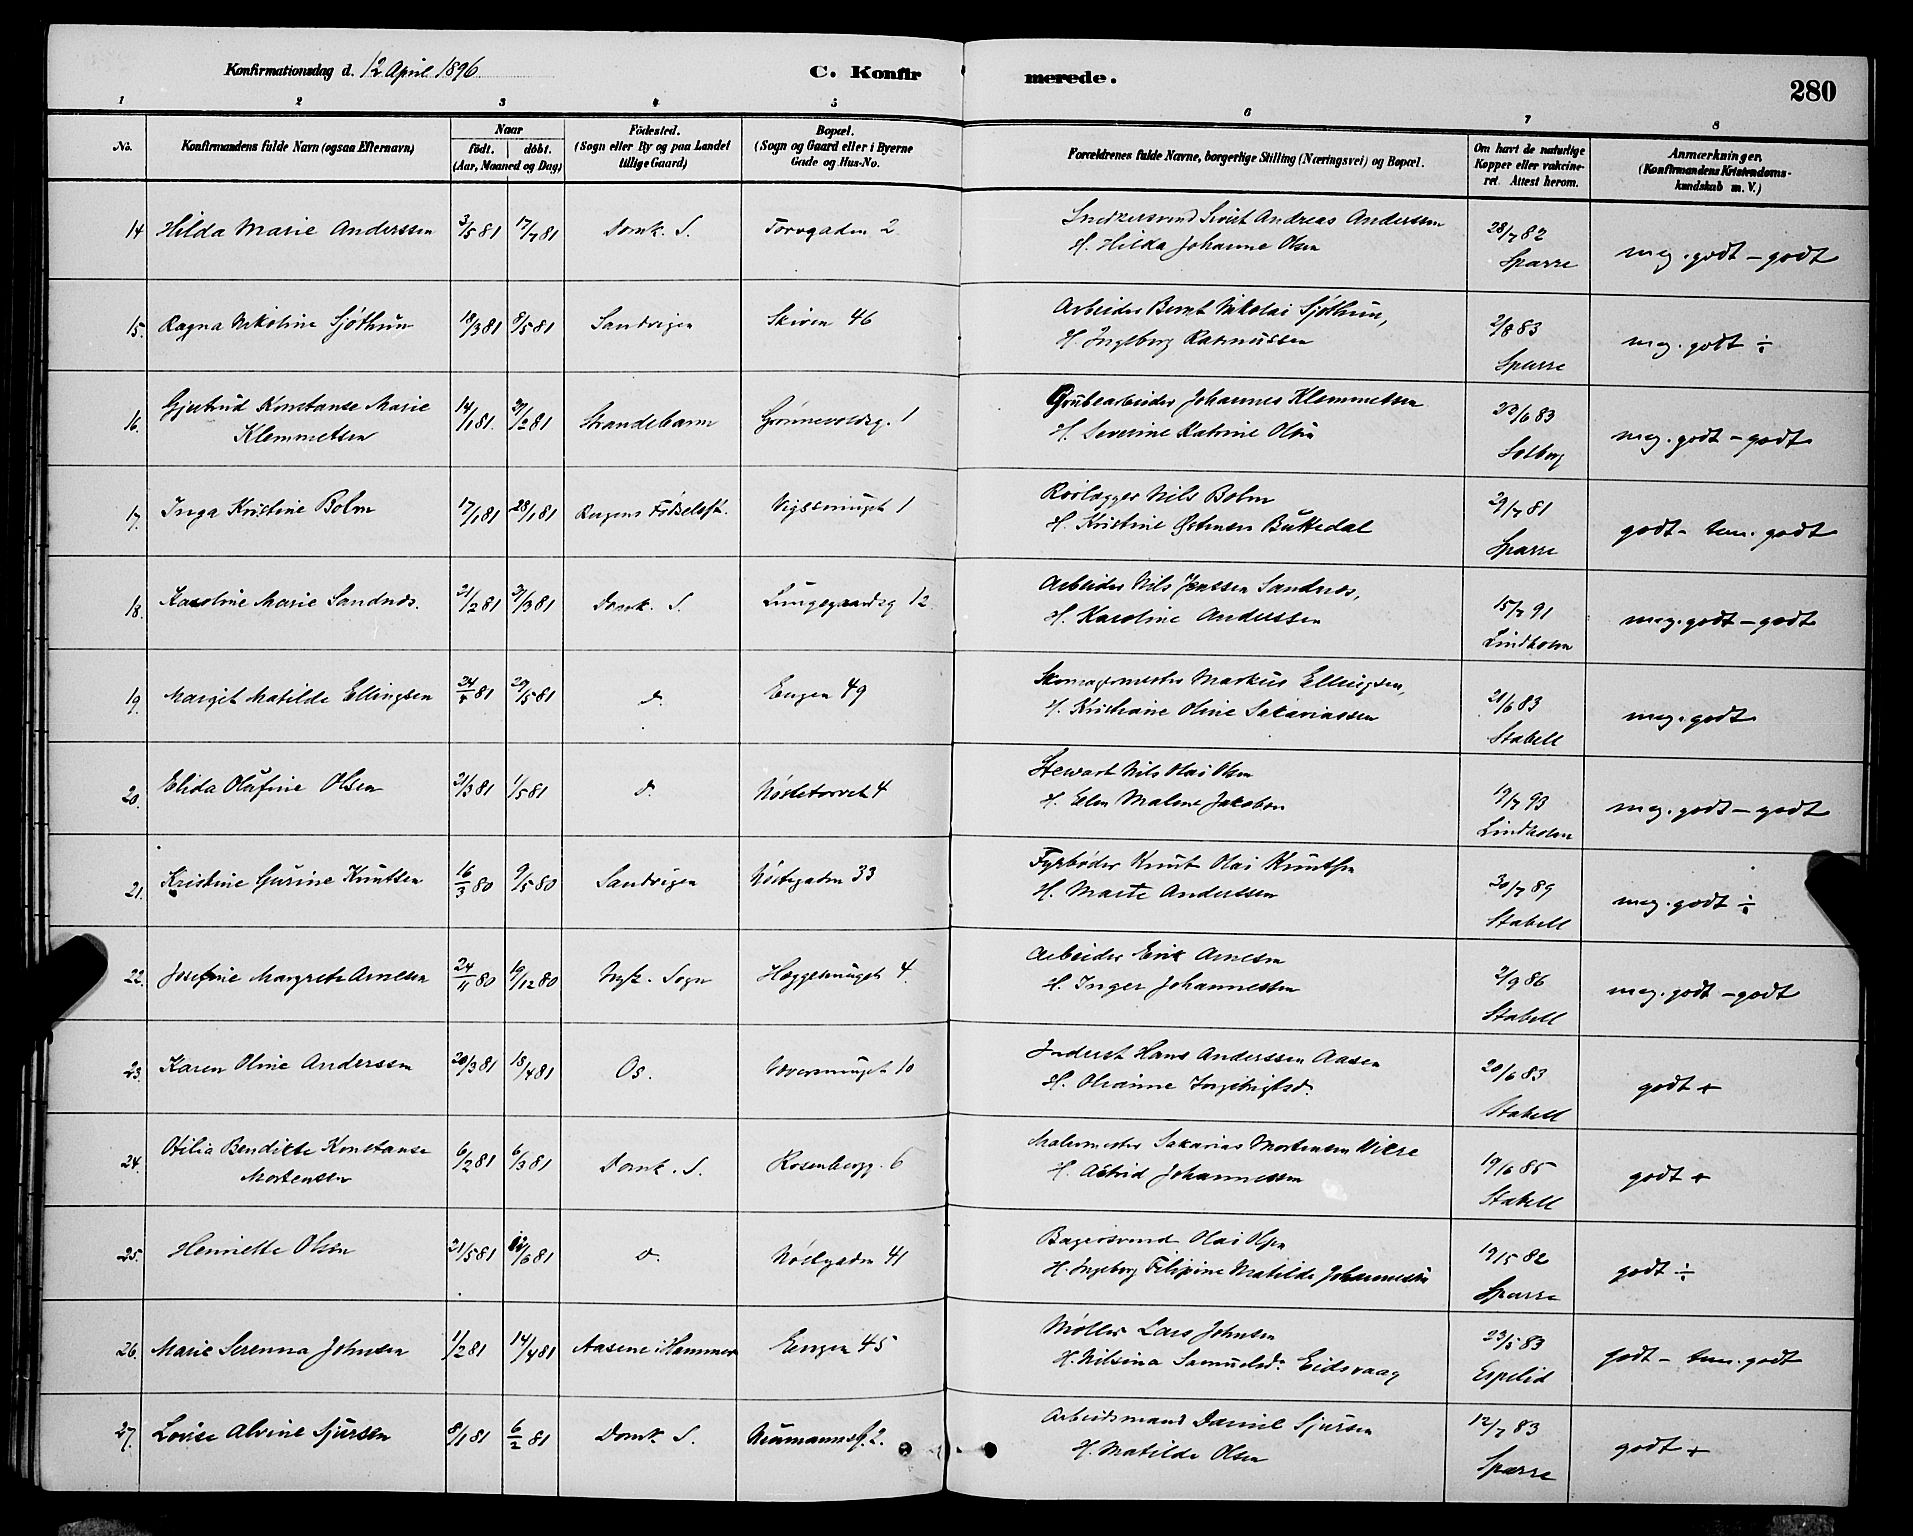 Konfirmationsdag d. 12 April 1896
C. Konfirmerede.
280
1 2 3 4 5 6 7 8
No.
Konfirmandens fulde Navn (ogsaa Efternavn)
Naar
födt. döbt.
(Aar, Maaned og Dag)
Födested.
(Sogn eller By og paa Landet
tillige Gaard)
Bopæl.
(Sogn og Gaard eller i Byerne
Gade og Hus-No.
Forældrenes fulde Navne, borgerlige Stilling (Næringsvei) og Bopæl.
Om havt de naturlige
Kopper eller vakcine-
ret. Attest herom.
Anmærkninger.
(Konfirmandens Kristendoms-
kundskab m. V.)
14 Hilda Marie Anderssen 3/5 81 17/7 81 Domk. S. Torvgaden 2 Snedkersvend Sivert Andreas Anderssen 28/7 82 meg. godt - godt
H. Hilda Johanne Olsen Sparre
15. Ragna Nikoline Sjøthun 18/3 81 8/5 81 Sandvigen Skiven 46 Arbeider Bernt Nikolai Sjøthun, 2/8 83 meg. godt ÷
H. Ingeborg Rasmussen Sparre
16. Gjertrud Konstanse Marie 14/1 81. 27/2 81 Strandebarm 1 Grubearbeider Johannes Klemmetsen 22/6 83 meg. godt - godt
Klemmetsen H. Severine Katrine Olsen Solberg
17. Inga Kristine Bolm 17/1 81 28/1 81 Bergens Fødselsst. 1 Rørlægger Nils Bolm 29/7 81 godt - tem. godt
H. Kristine Buttedal Sparre
18. Karoline Marie Sandnes. 21/2 81 27/3 81 Domk. S. Lungegaardsg 12 Arbeider Nils Jenssen Sandnes, 15/7 91 meg. godt - godt
H. Karoline Anderssen Lindholm
19. Margit Matilde Ellingsen 24/4 81 29/5 81 d. Engen 49 Skomagermester Markus Ellingsen, 21/6 83 meg. godt
H. Kristiane Oline Sakariassen Stabell
20. Elida Olufine Olsen 21/3 81 1/5 81 d. Nøstetorvet 4 Stewart Nils Olai Olsen 19/7 93 meg. godt - godt
H. Elen Malene Jakobsen Lindholm
21. Kristine Gurine Knutsen 16/3 80 9/5 80 Sandvigen Nøstegaden 33 Fyrbøder Knut Olai Knutsen 30/7 89 meg. godt ÷
H. Marte Anderssen Stabell
22. Josefine Margrete Arnesen 24/11 80 19/12 80 Nyk. Sogn Heggesmuget 4. Arbeider Erik Arnesen 2/9 86 meg. godt - godt
H. Inger Johannessen Stabell
23. Karen Oline Anderssen 20/3 81 18/4 81 Os. Væversmuget 10 Inderst Hans Anderssen Aasen 20/6 83 godt +
H. Olianne Ingebrigtsd. Stabell
24. Otilia Bendikte Konstanse 6/2 81 6/3 81 Domk. S. Rosenbergg. 6 Malermester Sakarias Mortensen 19/6 85 godt +
Mortensen H. Astrid Johannessen Stabell
25. Henriette Olsen 21/5 81 12/6 81 d. Nøstegaden 41 Bagersvend Olai Olsen 19/5 82 godt ÷
H. Ingeborg Filipine Matilde Johannessen Sparre
26. Marie Serenna Johnsen 1/2 81 14/4 81 Aasene i Hammer Engen 45 Møller Lars Johnsen 23/5 83 godt - tem. godt
H. Nilsina Samuelsd. Eidsvaag Espelid
27. Lovise Alvine Sjursen 8/1 81 6/2 81 Domk. S. Neumannsg. 2. Arbeidsmand Daniel Sjursen 12/7 83 godt +
H. Matilde Olsen Sparre